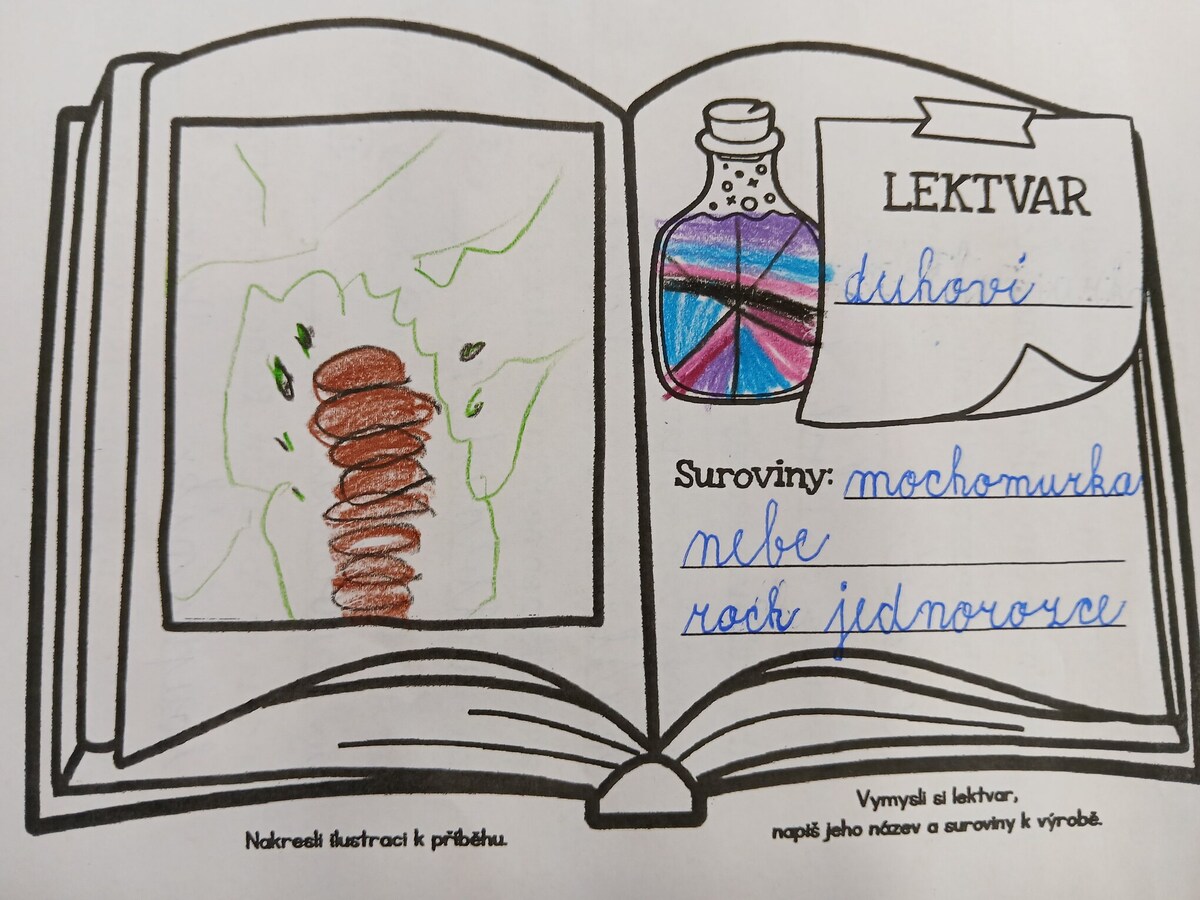 LEKTVAR
duhoví
Suroviny: mochomurka
nebe
roch jednorozce
Nakresli ilustraci k příběhu.
Vymysli si lektvar,
napiš jeho název a suroviny k výrobě.